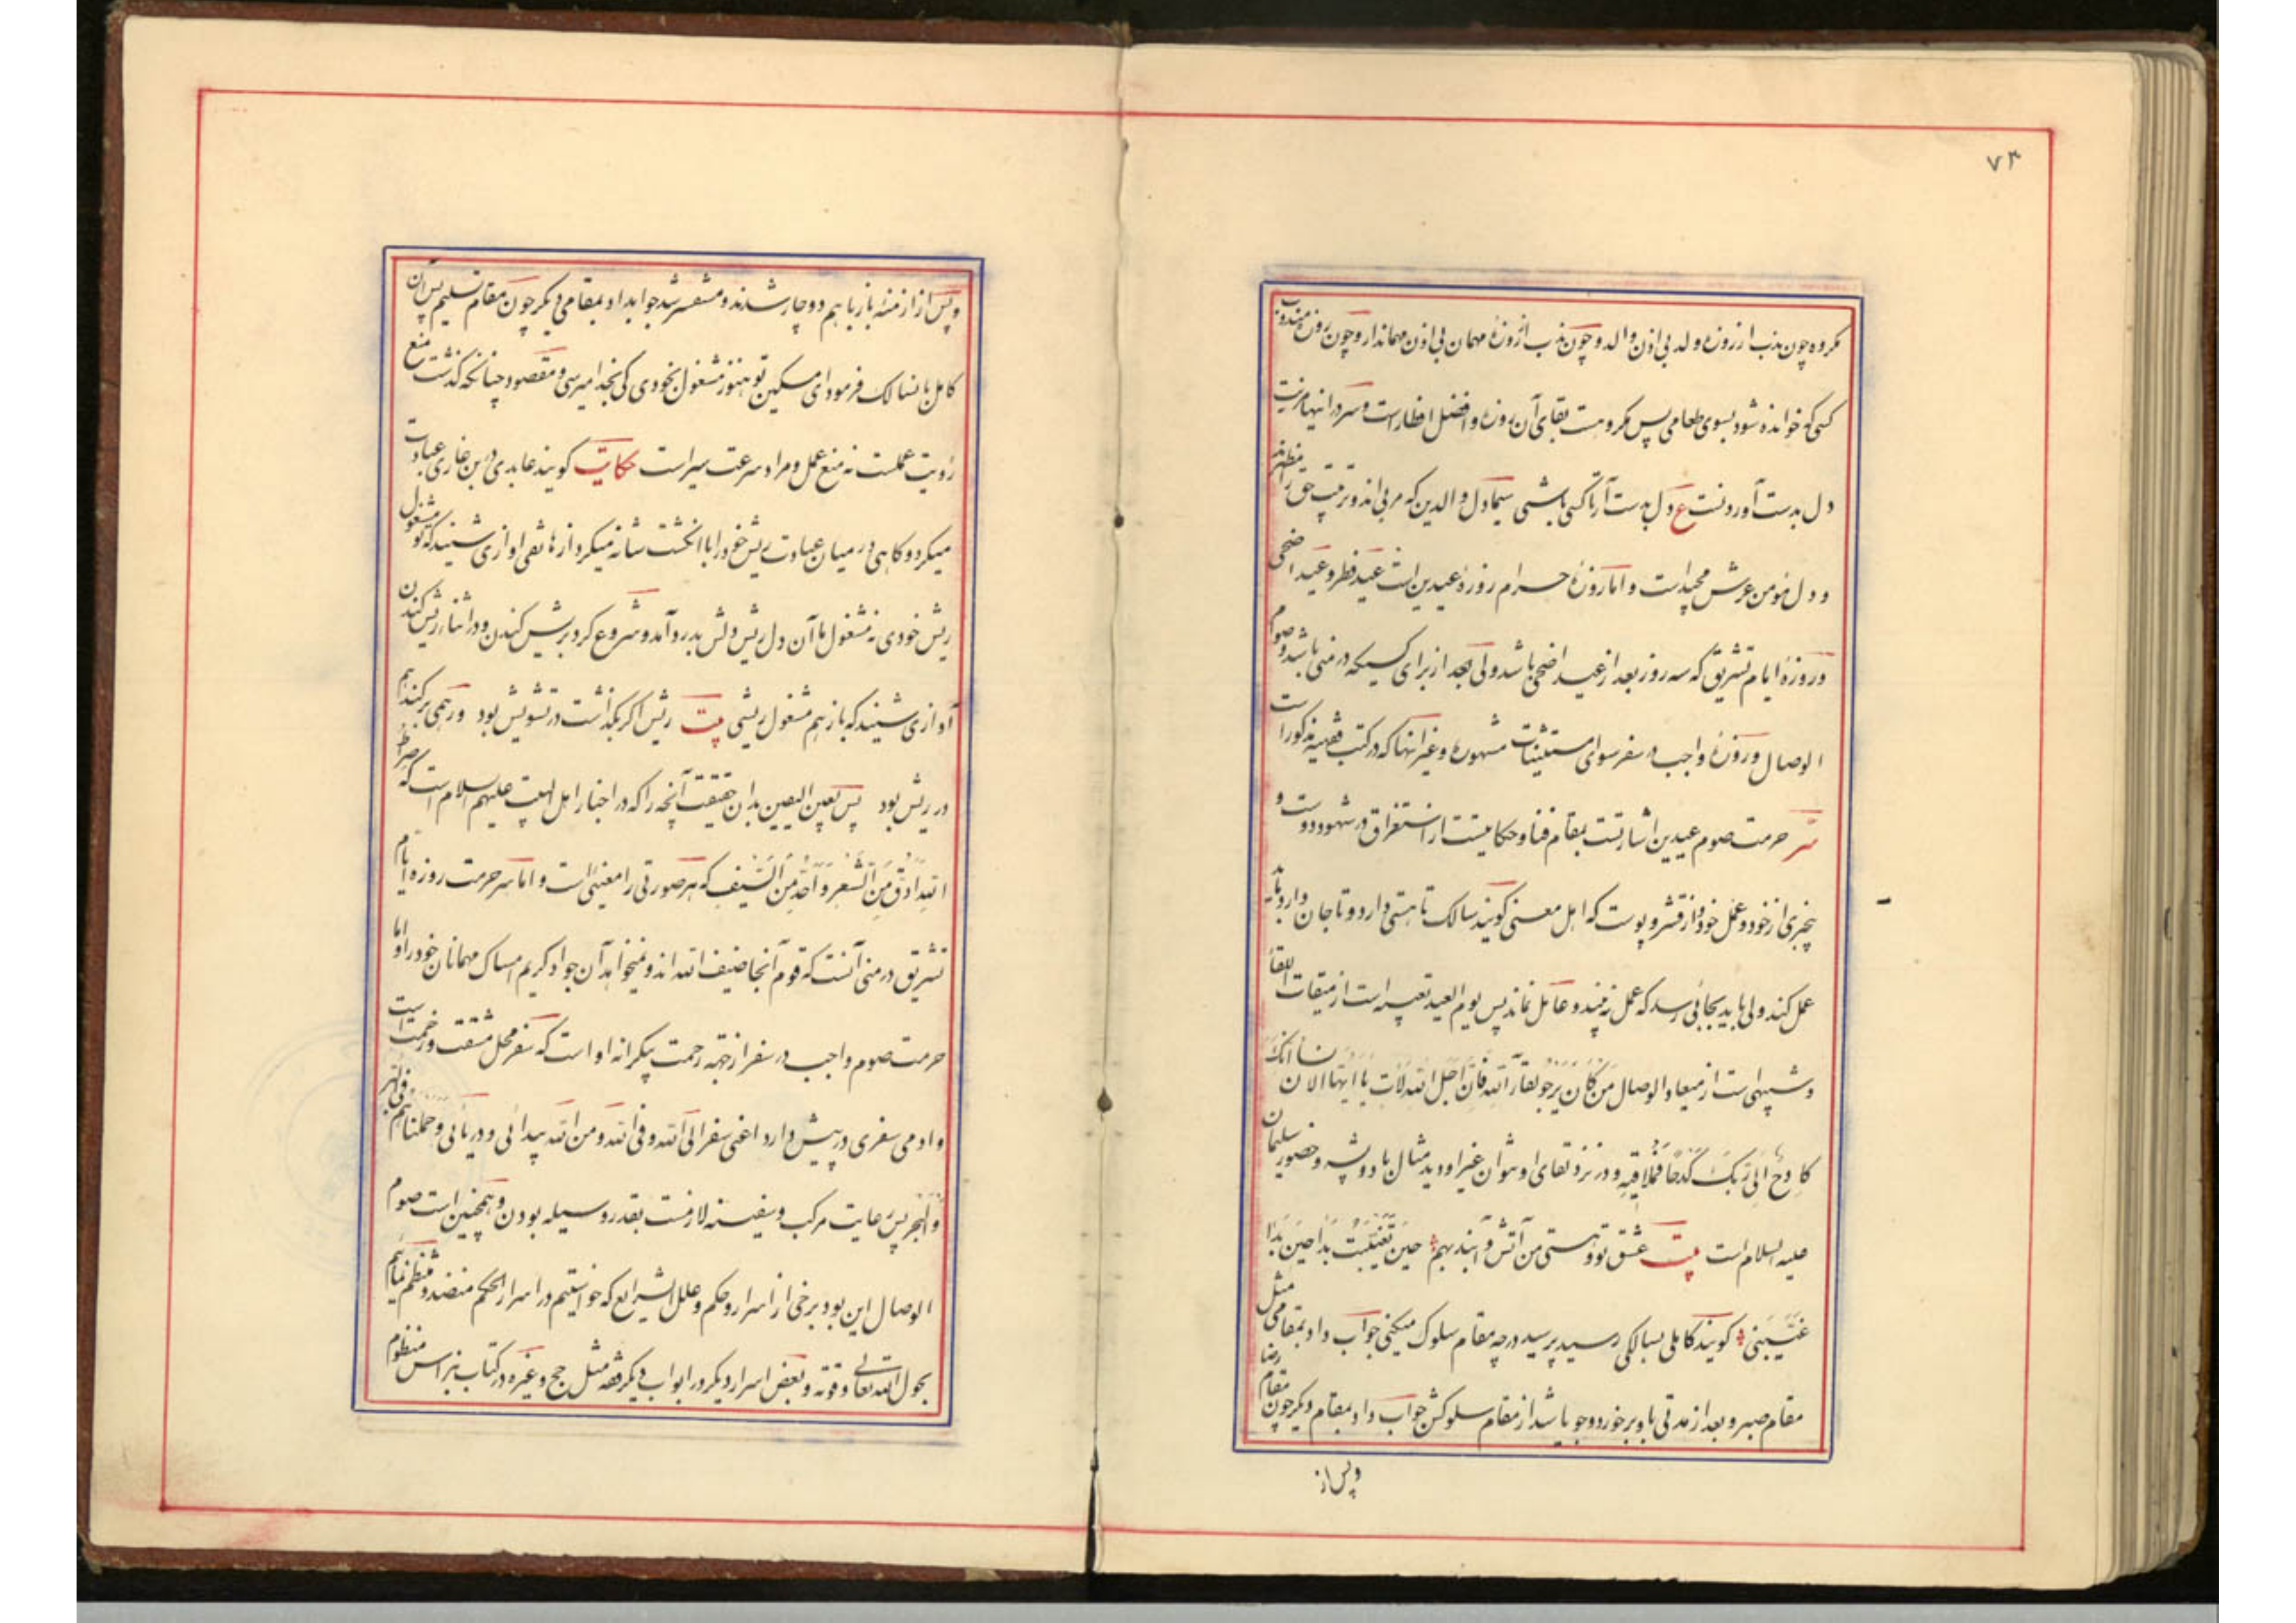 ۷۳
مکروه چون ندب از روزه ولد بی اذن والد و چون ندب از روزهٔ مهمان بی اذن مهماندار و چون روزه مندوب
کسی که خوانده شود بسوی طعامی پس مکروهست بقای آن روزه و افضل افطار است و سر در اینها مزیت
دل بدست آوردنست ع دل بدست آر تا کسی باشی سیما دل والدین که مربی اند و تربیت حق را مظهرند
و دل مؤمن عرش مجید است و اما روزهٔ حرام روزهٔ عیدین است عید فطر و عید اضحی
و روزهٔ ایام تشریق که سه روز بعد از عید اضحی باشد ولی بعد از برای کسیکه در منی باشد و صوم
الوصال و روزهٔ واجب در سفر سوای مستثنیات مشهوره و غیر اینها که در کتب فقهیه مذکور است
سر حرمت صوم عیدین اشارتست بمقام فنا و حکایتست از استغراق در شهود دوست و
بیخبری از خود و عمل خود و از قشر و پوست که اهل معنی گویند سالک تا هستی دارد و تا جان دارد باید
عمل کند ولی باید بجائی رسد که عمل نه بیند و عامل نماند پس یوم العید تعبیر است از میقات اللقاء
و شبهی است از میعاد الوصال مَن کانَ یَرجُو لِقاءَ اللهِ فَاِنَّ اَجَلَ اللهِ لَآتٍ یا اَیُّهَا الاِنسانُ اِنَّکَ
کادِحٌ اِلی رَبِّکَ کَدحاً فَمُلاقیهِ و در نزد لقای او نتوان غیر او دید مثال باد و پشه و حضور سلیمان
علیه السلام است بیت عشق تو و هستی من آتش و آبند بهم حینَ تَغَیَّبتُ بَدا حینَ بَدا
غَیَّبَنی گویند کاملی بسالکی رسید پرسید در چه مقام سلوک میکنی جواب داد بمقامی مثل
مقام صبر و بعد از مدتی باو برخورد و جویا شد از مقام سلوکش جواب داد بمقام دیگر چون مقام رضا
و پس از
و پس از ازمنهٔ باز با هم دو چار شدند و مستفسر شد جواب داد بمقامی دیگر چون مقام تسلیم پس آن
کامل بانسالک فرمود ای مسکین تو هنوز مشغول بخودی کی بخدا میرسی و مقصود چنانکه گذشت منع
رؤیت عملست نه منع عمل و مراد سرعت سیر است حکایت گویند عابدی در بن غاری عبادت
میکرد و گاهی در میان عبادت ریش خود را با انگشت شانه میکرد از هاتفی اوازی شنید که تو مشغول
ریش خودی نه مشغول ما آن دل ریش دلش بدرد آمد و شروع کرد بریش کندن و در اثناء ریش کندن
آوازی شنید که باز هم مشغول ریشی بیت ریش اگر بگذاشت در تشویش بود ور همی برکند هم
در ریش بود پس بعین الیقین بدان حقیقت آنچه را که در اخبار اهل البیت علیهم السلام است که صراط
الله اَدَقُّ مِنَ الشَّعرِ وَ اَحَدُّ مِنَ السَّیفِ که هر صورتی را معنئی است و اما سر حرمت روزه ایام
تشریق در منی آنست که قوم آنجا ضیف الله اند و نمیخواهد آن جواد کریم امساک مهمانان خود را و اما
حرمت صوم واجب در سفر از جهة رحمت بیکرانه او است که سفر محل مشقت و زحمت است
و ادمی سفری در پیش دارد اعنی سفر الی الله و فی الله و من الله بیدائی و دریائی و حملناهم فی البر
و البحر پس رعایت مرکب و سفینه لازمست بقدر وسیله بودن و همچنین است صوم
الوصال این بود برخی از اسرار و حکم و علل الشرایع که خواستیم در اسرار الحکم منضد و منظم نمائیم
بحول الله تعالی و قوته و بعض اسرار دیگر در ابواب دیگر فقه مثل حج و غیره در کتاب نبراس منظوم